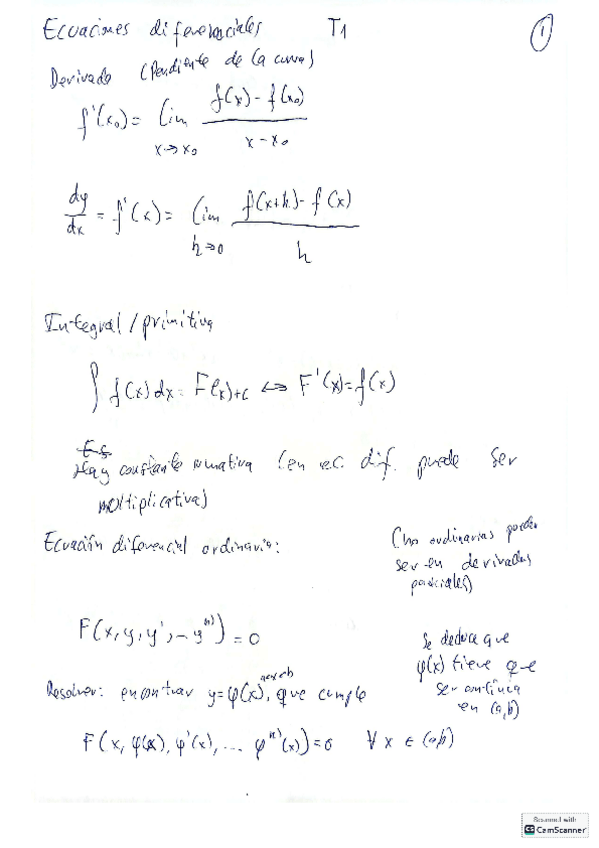 Ecuaciones diferenciales T1 ①
Derivada (Pendiente de la curva)
f'(x₀) = lim x→x₀ (f(x) - f(x₀)) / (x - x₀)
dy/dx = f'(x) = lim h→0 (f(x+h) - f(x)) / h
Integral / primitiva
∫ f(x) dx = F(x) + c ⟺ F'(x) = f(x)
Hay constante sumativa (en ec. dif. puede ser
multiplicativa)
Ecuación diferencial ordinaria:
(no ordinarias pueden
ser en derivadas
parciales)
F(x, y, y', … y⁽ⁿ⁾) = 0
Se deduce que
φ(x) tiene que
ser continua
en (a,b)
Resolver: encontrar y=φ(x), a<x<b que cumple
F(x, φ(x), φ'(x), ... φ⁽ⁿ⁾(x)) = 0 ∀ x ∈ (a,b)
Scanned with
CS CamScanner